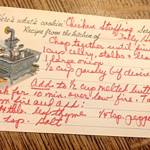 Here's what's cookin' Chicken Stuffing
Recipe from the kitchen of
Chop together until fine
1 cup celery, stalks & leaves
1 large onion
1/2 cup parsley (if desired)
Add to 1/2 cup melted butter
for 10 min. over low fire.
fire and add:
thyme 1/4 tsp. pepper
tsp. salt